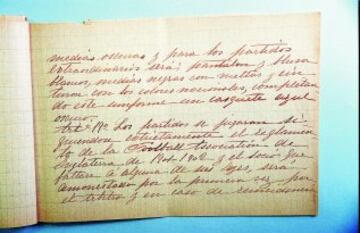 medias oscuras y para los partidos
extraordinarios será; pantalon y blusa
blancos, medias negras con  y cin
turon con los colores nacionales, completan
do este uniforme un casquete azul
oscuro.
Art. 19º Los partidos se jugaran si
guiendose estrictamente el reglamen
to de la Football Association de
Inglaterra de 1901-1902 y el socio que
faltare á alguna de sus leyes, será
amonestado por la primera vez por
el árbitro y en caso de reincidencia